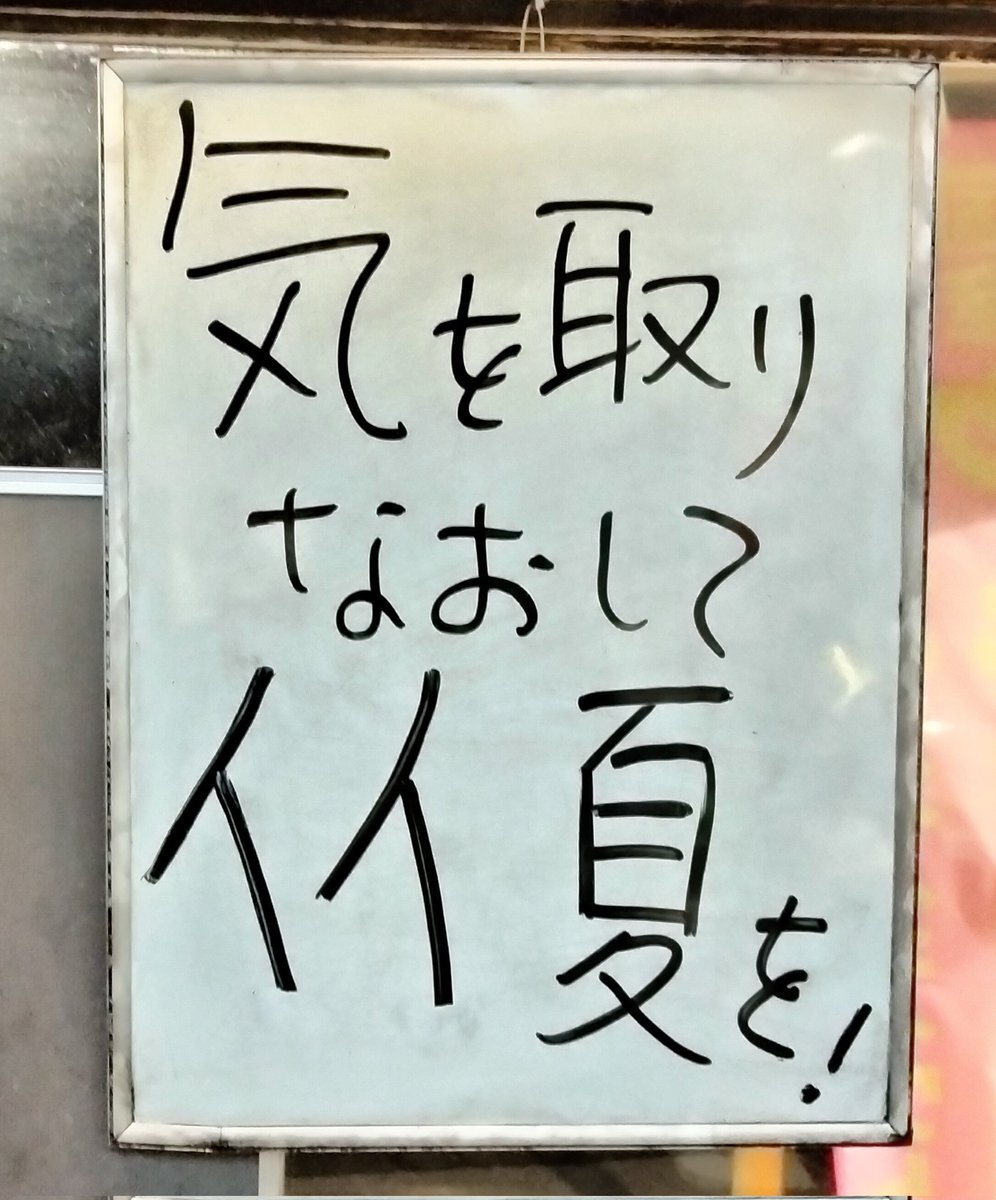 気を取り
なおして
イイ夏を!